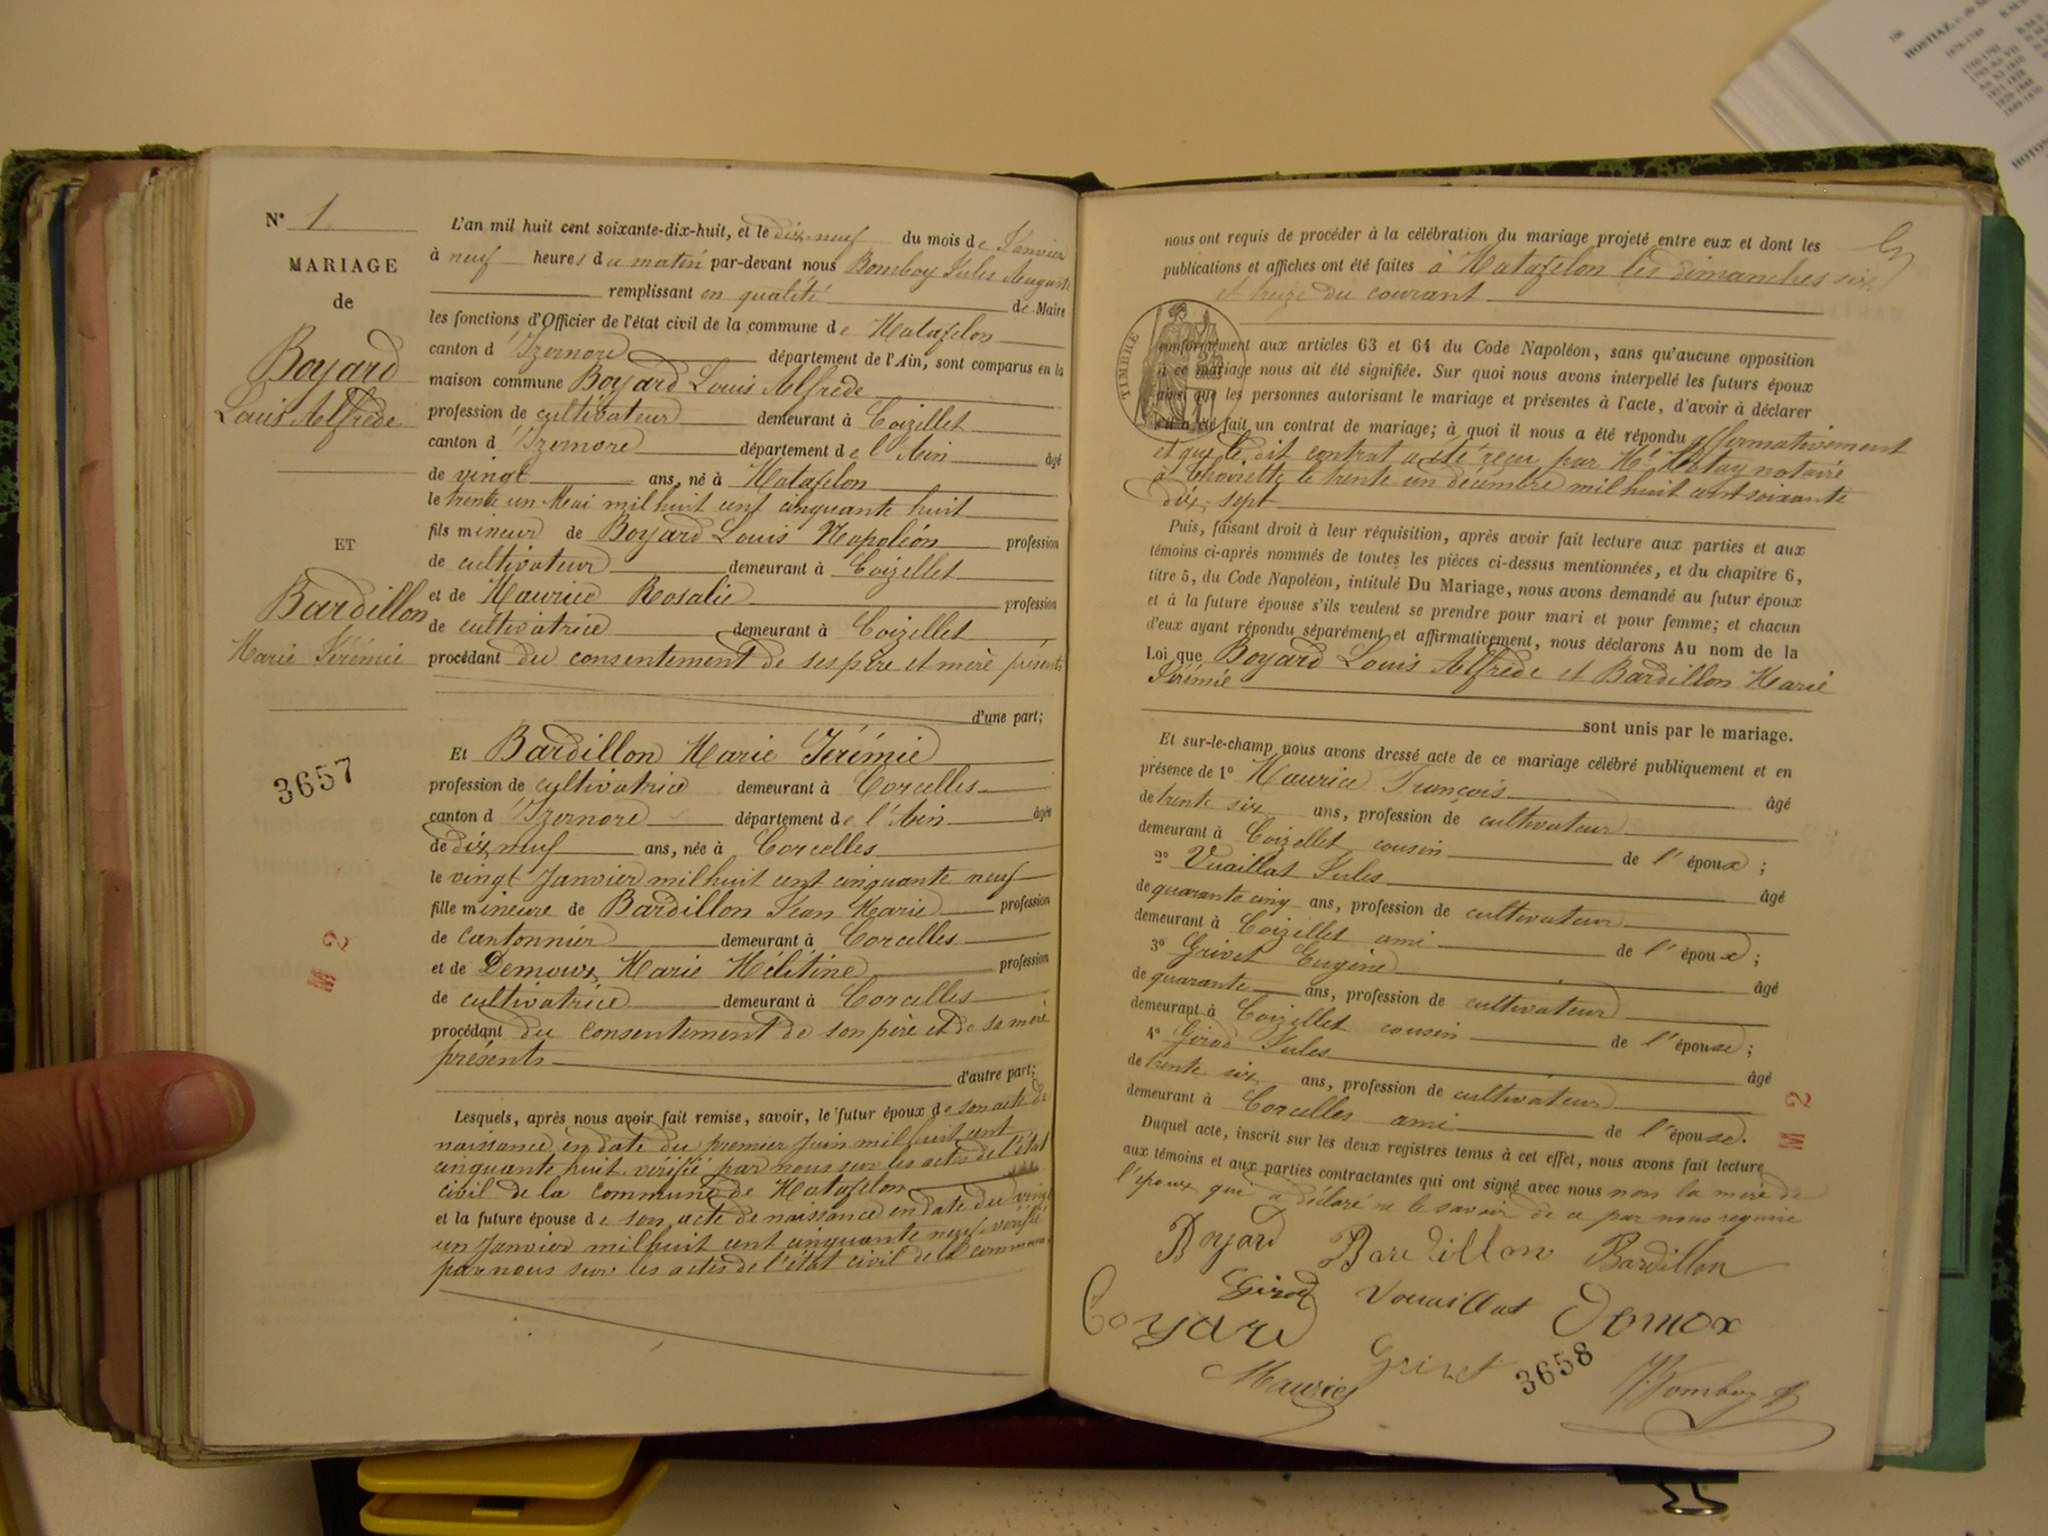 N° 1
MARIAGE
de
Boyard
Louis Alfrede
ET
Bardillon
Marie Jérémie
3657
M 2
L'an mil huit cent soixante-dix-huit, et le dix-neuf du mois de Janvier
à neuf heures du matin par-devant nous Bomboy Jules Auguste
remplissant en qualité de Maire
les fonctions d'Officier de l'état civil de la commune de Matafelon
canton d'Izernore département de l'Ain, sont comparus en la
maison commune Boyard Louis Alfrede
profession de cultivateur demeurant à Coizellet
canton d'Izernore département de l'Ain âgé
de vingt ans, né à Matafelon
le trente un Mai mil huit cent cinquante huit
fils mineur de Boyard Louis Napoléon profession
de cultivateur demeurant à Coizellet
et de Maurice Rosalie profession
de cultivatrice demeurant à Coizellet
procédant du consentement de ses père et mère présents
d'une part;
Et Bardillon Marie Jérémie
profession de cultivatrice demeurant à Corcelles
canton d'Izernore département de l'Ain âgée
de dix neuf ans, née à Corcelles
le vingt Janvier mil huit cent cinquante neuf
fille mineure de Bardillon Jean Marie profession
de Cantonnier demeurant à Corcelles
et de Demoux Marie Mélitine profession
de cultivatrice demeurant à Corcelles
procédant du consentement de son père et de sa mère
présents
d'autre part;
Lesquels, après nous avoir fait remise, savoir, le futur époux de son acte de
naissance en date du premier Juin mil huit cent
cinquante huit vérifié par nous sur les actes de l'état
civil de la commune de Matafelon
et la future épouse de son acte de naissance en date du vingt
un Janvier mil huit cent cinquante neuf vérifié
par nous sur les actes de l'état civil de la commune
nous ont requis de procéder à la célébration du mariage projeté entre eux et dont les
publications et affiches ont été faites à Matafelon les dimanches six
et treize du courant
TIMBRE
conformément aux articles 63 et 64 du Code Napoléon, sans qu'aucune opposition
à ce mariage nous ait été signifiée. Sur quoi nous avons interpellé les futurs époux
ainsi que les personnes autorisant le mariage et présentes à l'acte, d'avoir à déclarer
s'il a été fait un contrat de mariage; à quoi il nous a été répondu affirmativement
et que le dit contrat a été reçu par Me notaire
à Thoirette le trente un décembre mil huit cent soixante
dix-sept
Puis, faisant droit à leur réquisition, après avoir fait lecture aux parties et aux
témoins ci-après nommés de toutes les pièces ci-dessus mentionnées, et du chapitre 6,
titre 5, du Code Napoléon, intitulé Du Mariage, nous avons demandé au futur époux
et à la future épouse s'ils veulent se prendre pour mari et pour femme; et chacun
d'eux ayant répondu séparément et affirmativement, nous déclarons Au nom de la
Loi que Boyard Louis Alfrede et Bardillon Marie
Jérémie
sont unis par le mariage.
Et sur-le-champ nous avons dressé acte de ce mariage célébré publiquement et en
présence de 1° Maurice François âgé
de trente six ans, profession de cultivateur
demeurant à Coizellet cousin de l'époux;
2° Vuaillat Jules âgé
de quarante cinq ans, profession de cultivateur
demeurant à Coizellet ami de l'époux;
3° Grivet Eugène âgé
de quarante ans, profession de cultivateur
demeurant à Coizellet cousin de l'épouse;
4° Girod Jules âgé
de trente six ans, profession de cultivateur
demeurant à Corcelles ami de l'épouse.
Duquel acte, inscrit sur les deux registres tenus à cet effet, nous avons fait lecture
aux témoins et aux parties contractantes qui ont signé avec nous non la mère de
l'époux qui a déclaré ne le savoir de ce par nous requise
Boyard Bardillon Bardillon
Girod Vouaillat Demox
Boyard
Maurice Grivet 3658 Bomboy
M 2